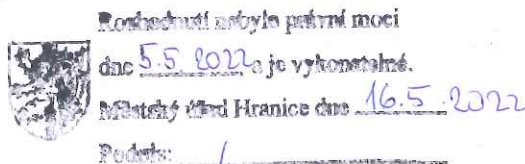 Rozhodnutí nabylo právní moci
dne 5.5.2022 a je vykonatelné.
Městský úřad Hranice dne 16.5.2022
Podpis: